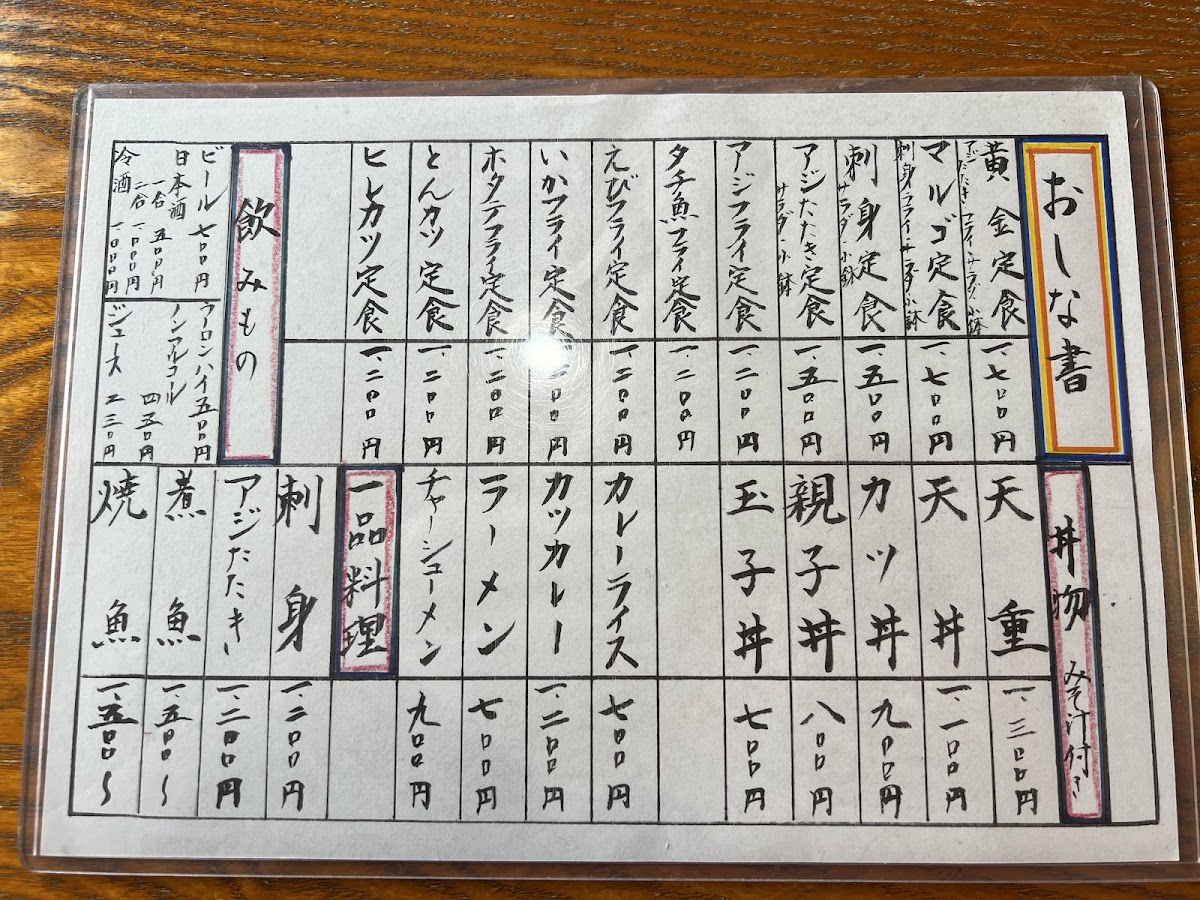 おしな書
黄金定食
アジたたき フライ サラダ 小鉢
一、七〇〇円
マルゴ定食
刺身 フライ サラダ 小鉢
一、七〇〇円
刺身定食
サラダ・小鉢
一、五〇〇円
アジたたき定食
サラダ・小鉢
一、五〇〇円
アジフライ定食
一、二〇〇円
タチ魚フライ定食
一、二〇〇円
えびフライ定食
一、二〇〇円
いかフライ定食
二〇〇円
ホタテフライ定食
一、二〇〇円
とんカツ定食
一、二〇〇円
ヒレカツ定食
一、二〇〇円
飲みもの
ビール 七〇〇円
日本酒
一合 五〇〇円
二合 一、〇〇〇円
冷酒 一、〇〇〇円
ウーロンハイ 五〇〇円
ノンアルコール 四五〇円
ジュース 二三〇円
丼物 みそ汁付き
天重
一、三〇〇円
天丼
一、一〇〇円
カツ丼
九〇〇円
親子丼
八〇〇円
玉子丼
七〇〇円
カレーライス
七〇〇円
カツカレー
一、二〇〇円
ラーメン
七〇〇円
チャーシューメン
九〇〇円
一品料理
刺身
一、二〇〇円
アジたたき
一、二〇〇円
煮魚
一、五〇〇〜
焼魚
一、五〇〇〜